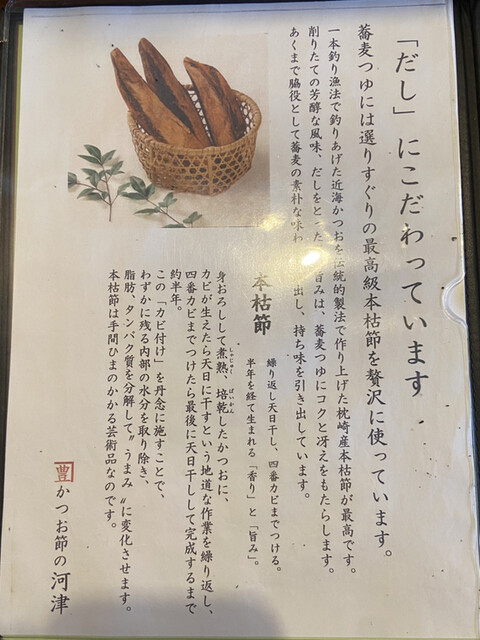 「だし」にこだわっています
蕎麦つゆには選りすぐりの最高級本枯節を贅沢に使っています。
一本釣り漁法で釣りあげた近海かつおを伝統的製法で作り上げた枕崎産本枯節が最高です。
削りたての芳醇な風味、だしをとった 旨みは、蕎麦つゆにコクと冴えをもたらします。
あくまで脇役として蕎麦の素朴な味わ 出し、持ち味を引き出しています。
本枯節
繰り返し天日干し、四番カビまでつける。
半年を経て生まれる「香り」と「旨み」。
身おろしして煮熟、焙乾したかつおに、
しゃじゅく
ばいかん
カビが生えたら天日に干すという地道な作業を繰り返し、
四番カビまでつけたら最後に天日干しして完成するまで
約半年。
この「カビ付け」を丹念に施すことで、
わずかに残る内部の水分を取り除き、
脂肪、タンパク質を分解して〝うまみ〟に変化させます。
本枯節は手間ひまのかかる芸術品なのです。
豊 かつお節の河津